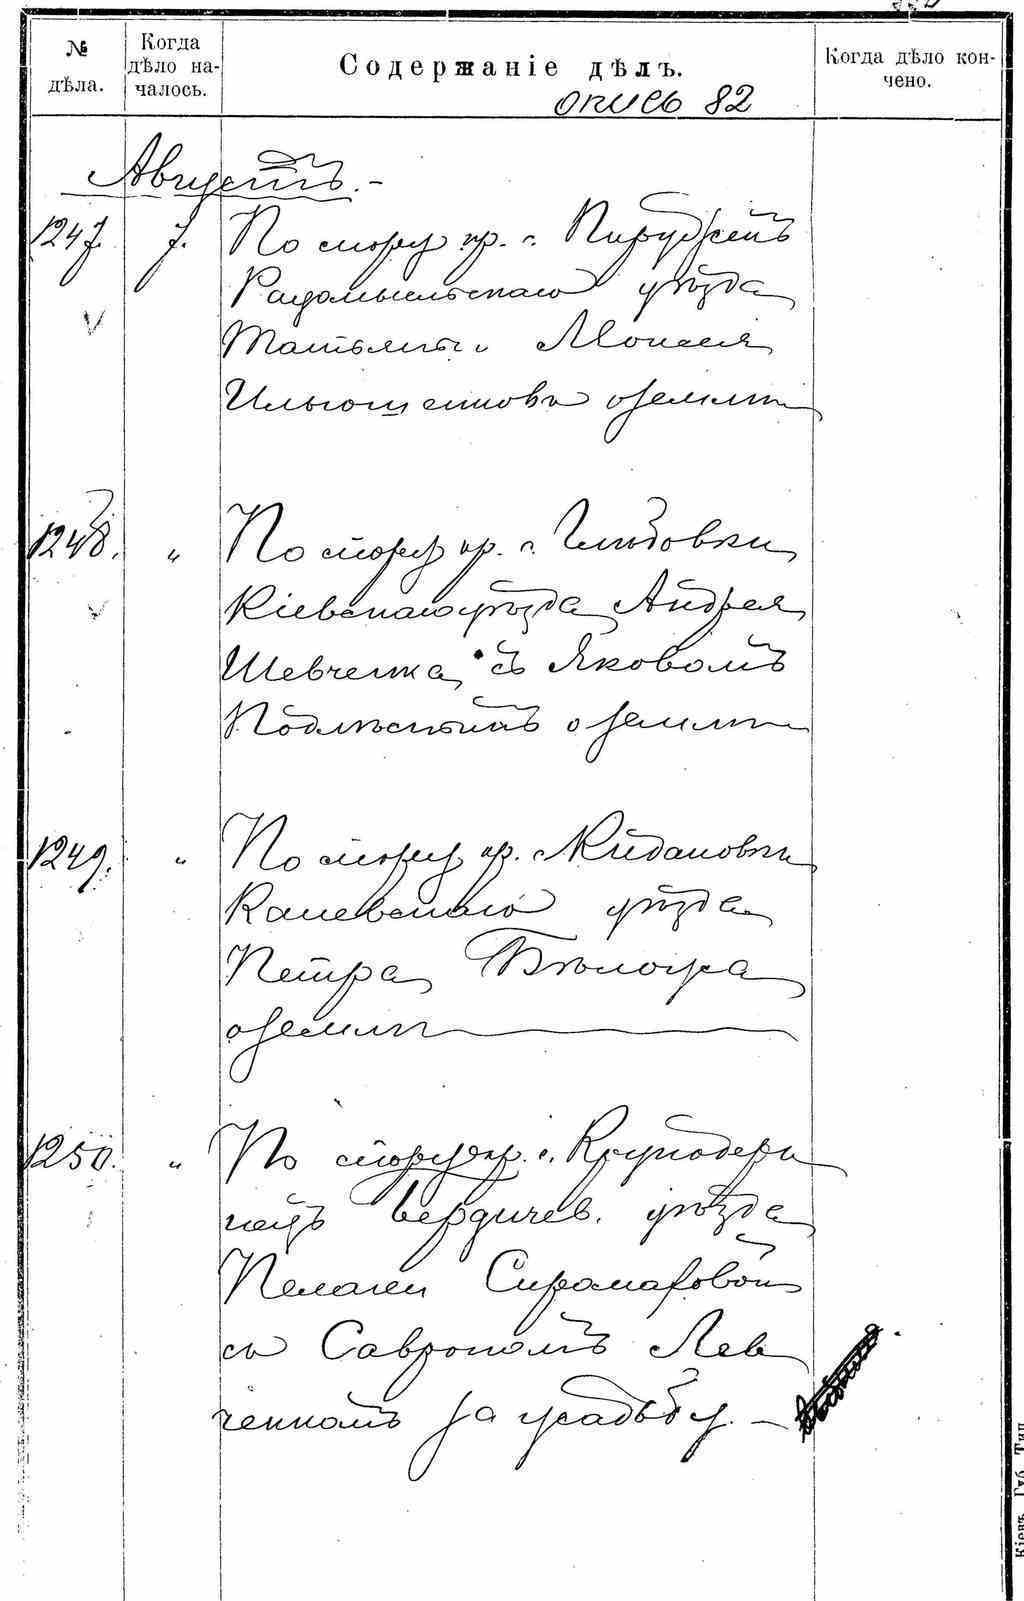 № дѣла.
Когда
дѣло на-
чалось.
Содержаніе дѣлъ.
Когда дѣло кон-
чено.
опись 82
Августъ.-
1247. 7. По спору кр. с.
Радомысльскаго уѣзда
Татьяны и Моисея
Ильюшенковъ о землѣ
1248. „ По спору кр. с. Глѣбовки
Кіевскаго уѣзда Андрея
Шевченка съ Яковомъ
Подлѣснымъ о землѣ
1249. „ По спору кр. с. Кидановки
Каневскаго уѣзда
Петра Бѣлоуса
о землѣ
1250. „ По спору кр. с. Круподери
нецъ Бердичев. уѣзда
Пелагеи
съ Лев
ченкомъ за усадьбу. -
Кіевъ. Губ. Тип.